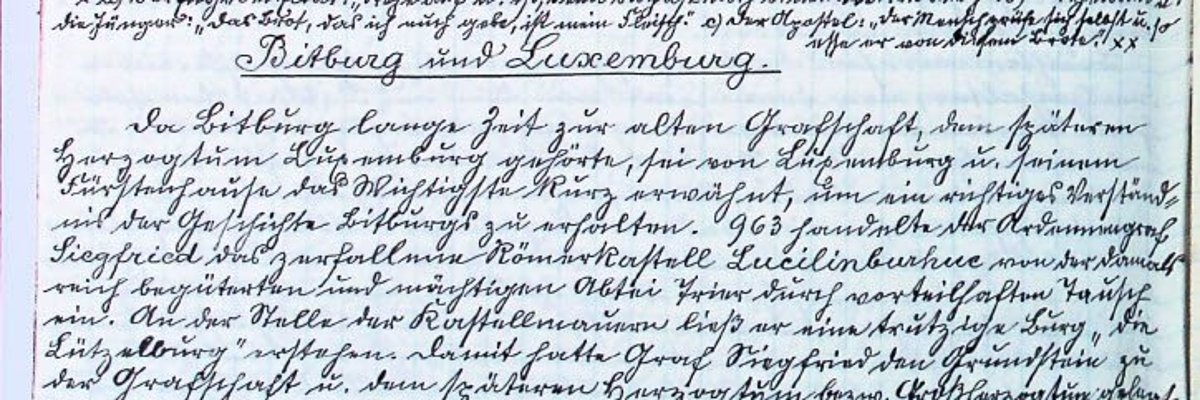 die Jünger: „das Brot, das ich euch gebe, ist mein Fleisch." c) der Apostel: „der Mensch prüfe sich selbst u. so
esse er von diesem Brote." xx
Bitburg und Luxemburg.
Da Bitburg lange Zeit zur alten Grafschaft, dem späteren
Herzogtum Luxemburg gehörte, sei von Luxemburg u. seinem
Fürstenhause das Wichtigste kurz erwähnt, um ein richtiges Verständ=
nis der Geschichte Bitburgs zu erhalten. 963 handelte der Ardennengraf
Siegfried das zerfallene Römerkastell Lucilinburhuc von der damals
reich begüterten und mächtigen Abtei Trier durch vorteilhaften Tausch
ein. An der Stelle der Kastellmauern ließ er eine trutzige Burg „die
Lützelburg" erstehen. Damit hatte Graf Siegfried den Grundstein zu
der Grafschaft u. dem späteren Herzogtum bezw. Großherzogtum gelegt.